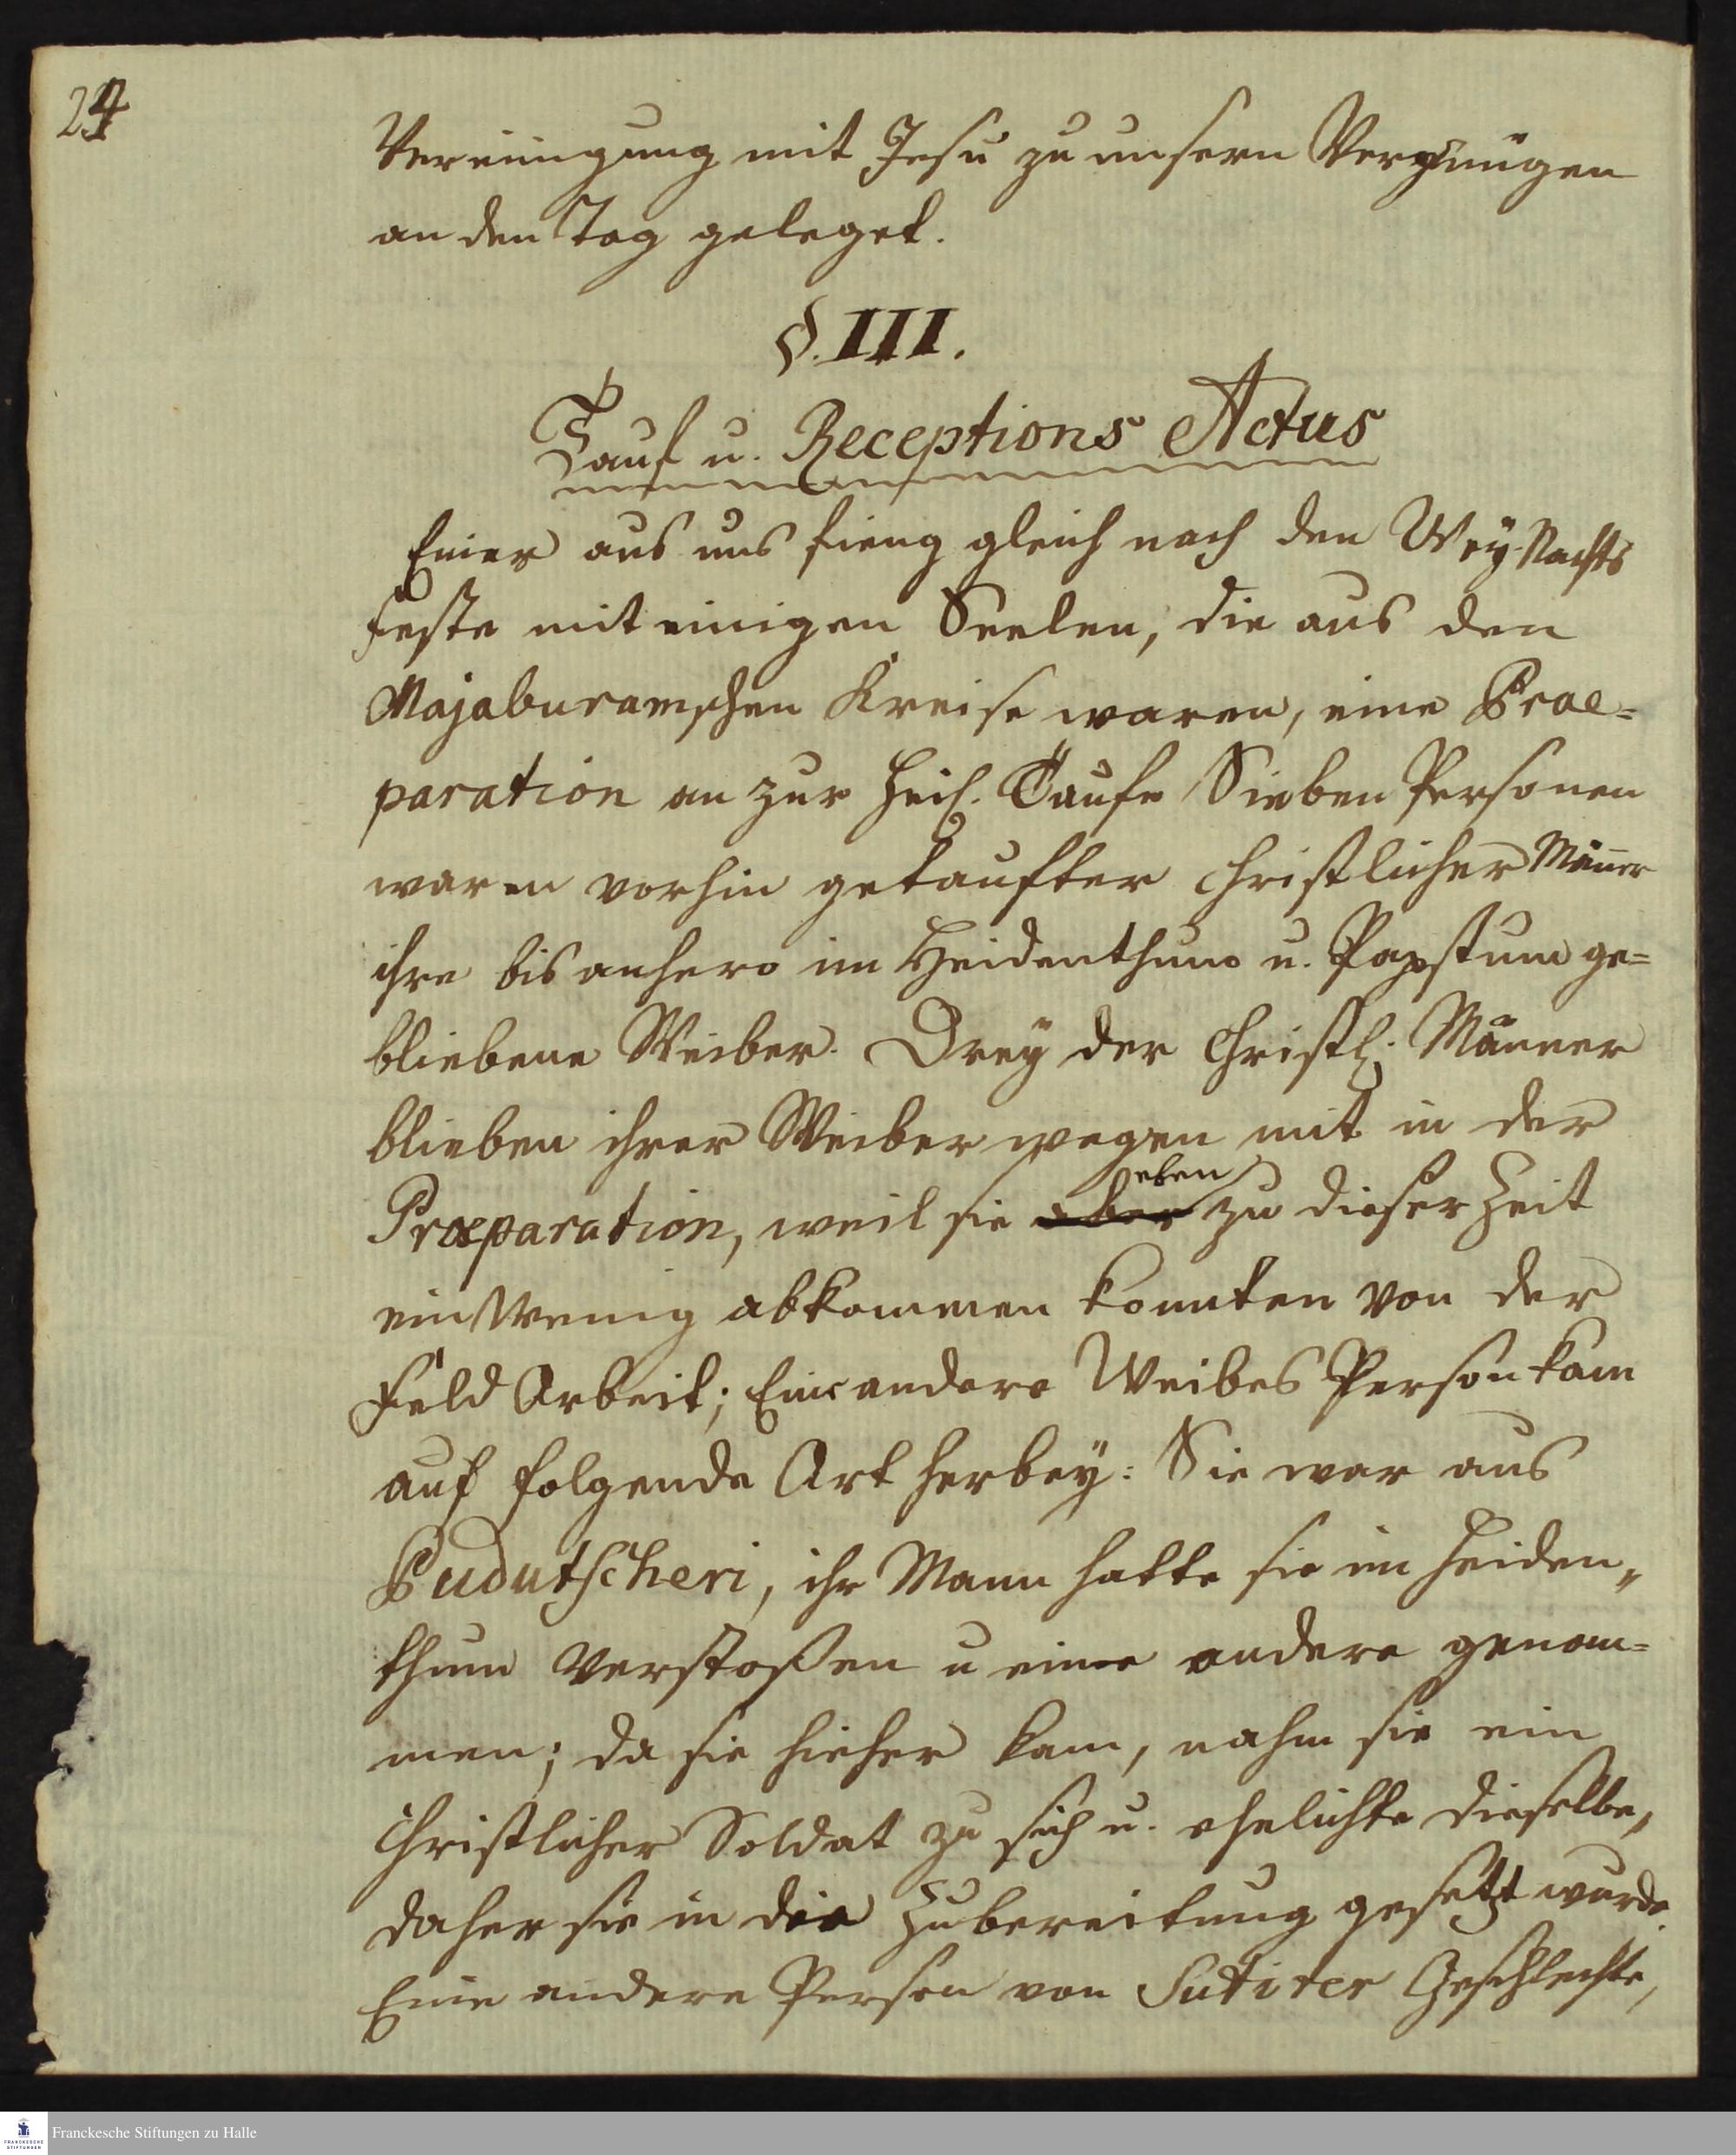 24
Vereinigung mit Jesu zu unsern Vergnügen
an den Tag geleget.
§. III.
Tauf u. Receptions Actus
Einer aus uns fieng gleich nach den Wey-Nachts
Feste mit einigen Seelen, die aus den
Majaburamschen Kreise waren, eine Prae=
paration an zur Heil. Taufe Sieben Personen
waren vorhin getaufter Christlicher Mäner
ihre bis anhero im Heidenthum u. Papstum ge=
bliebene Weiber. Drey der Christl: Männer
blieben ihrer Weiber wegen mit in der
Praeparation, weil sie aber eben zu dieser Zeit
ein Wenig abkommen konnten von der
Feld Arbeit; Eine andere Weibes Person kam
auf folgende Art herbey: Sie war aus
Pudutscheri, ihr Mann hatte sie im Heiden„
thum verstoßen u eine andere genom=
men; da sie hieher kam, nahm sie ein
Christlicher Soldat zu sich u. ehelichte dieselbe,
daher sie in die Zubereitung gesetzt wurde.
Eine andere Person von Sutirer Geschlechte,
Franckesche Stiftungen zu Halle